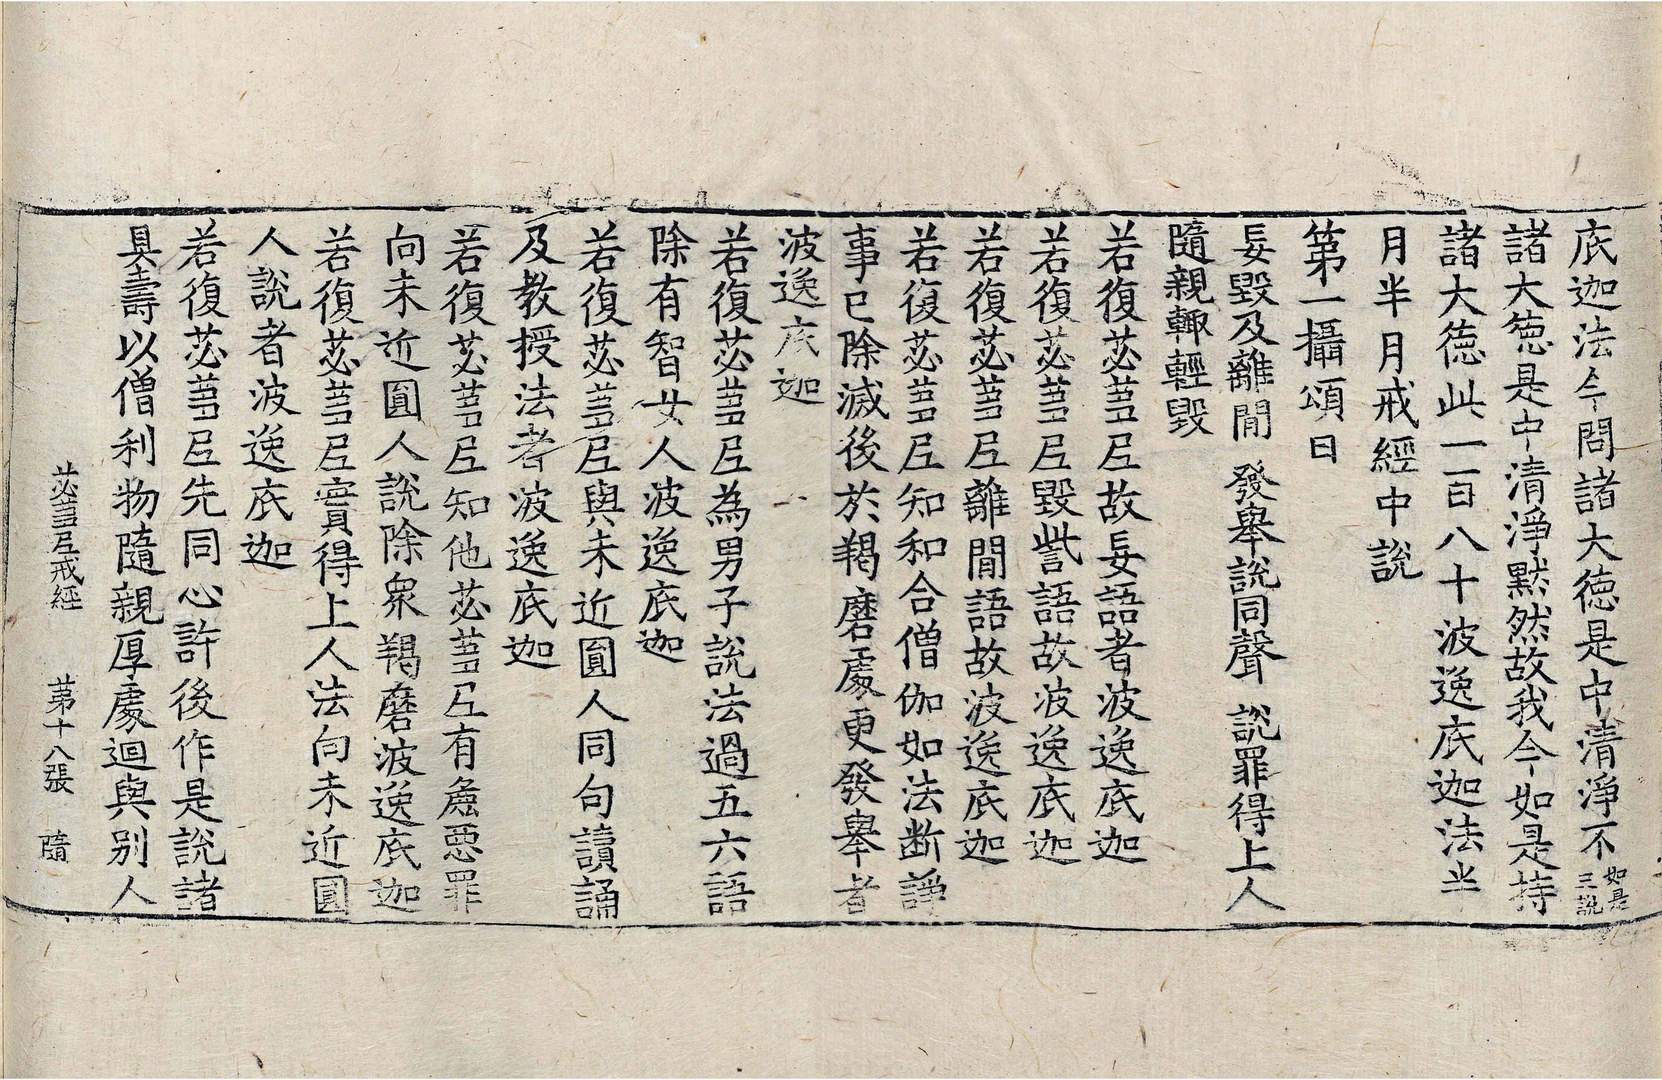 底迦法今問諸大徳是中清淨不如是三說
諸大徳是中清淨黙然故我今如是持
諸大徳此一百八十波逸底迦法半
月半月戒經中說
第一攝頌曰
妄毀及離間　發舉說同聲　說罪得上人
隨親輙輕毀
若復苾蒭尼故妄語者波逸底迦
若復苾蒭尼毀訾語故波逸底迦
若復苾蒭尼離間語故波逸底迦
若復苾蒭尼知和合僧伽如法断諍
事已除滅後於羯磨處更發舉者
波逸底迦
若復苾蒭尼為男子說法過五六語
除有智女人波逸底迦
若復苾蒭尼與未近圓人同句讀誦
及教授法者波逸底迦
若復苾蒭尼知他苾蒭尼有麁惡罪
向未近圓人說除衆羯磨波逸底迦
若復苾蒭尼實得上人法向未近圓
人說者波逸底迦
若復苾蒭尼先同心許後作是說諸
具壽以僧利物隨親厚處迴與別人
苾蒭尼戒經　第十八張　隨